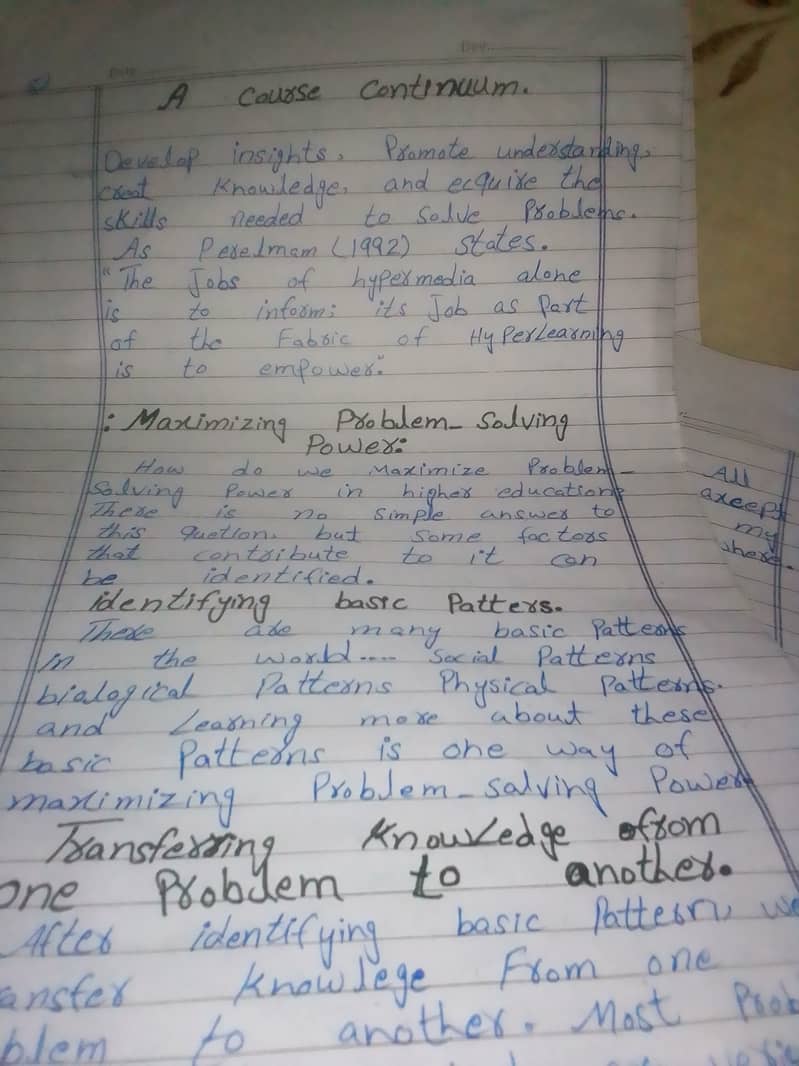 A Course Continuum.
Develop insights, Promote understanding,
creat Knowledge, and ecquire the
skills needed to Solve Problems.
As Perelmam (1992) states.
"The Jobs of hypermedia alone
is to inform: its Job as Part
of the Fabric of HyPerLearning
is to empower."
: Maximizing Problem- Solving
Power:
How do we Maximize Problem-
Solving Power in higher education?
There is no simple answer to
this quetion, but some factors
that contribute to it can
be identified.
identifying basic Patters.
There are many basic Patterns
In the world.... Social Patterns
bialogical Patterns Physical Patterns.
and Learning more about these
basic Patterns is one way of
maximizing Problem-salving Power
Transferring Knowledge from
one Problem to another.
After identifying basic Pattern, we
ansfer knowlege From one
blem to another. Most Prob
All
axcept
my